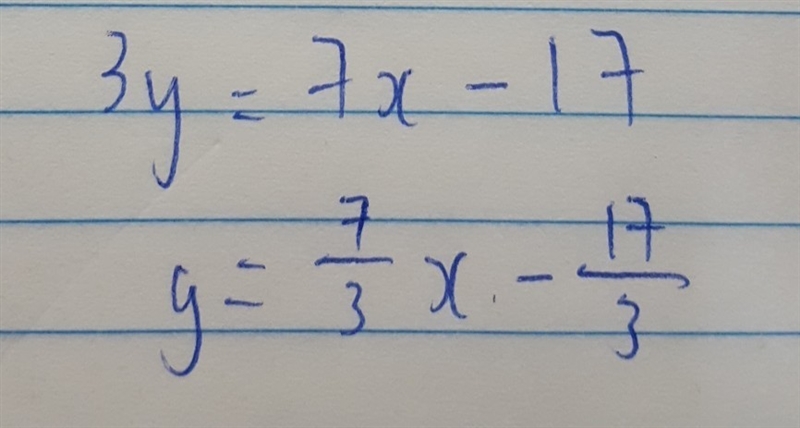 3y = 7x - 17
y = 7/3 x - 17/3